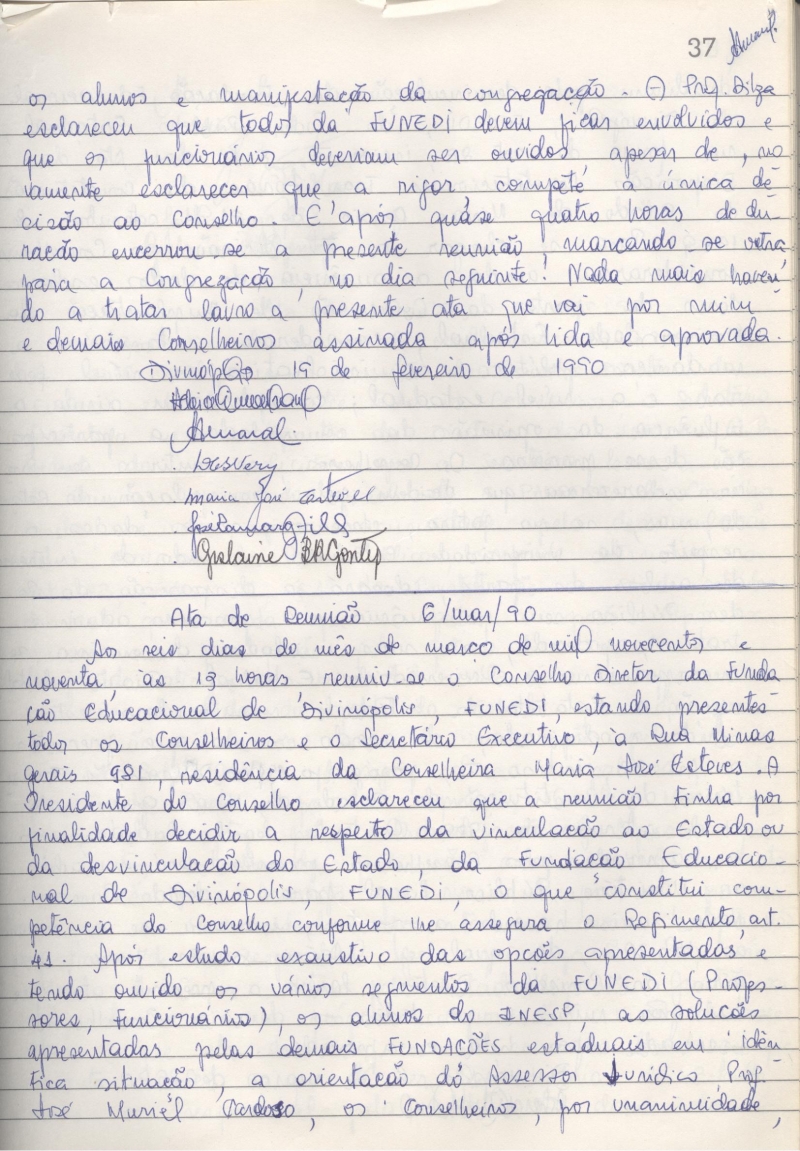 37
os alunos e manifestação da congregação. (-) Prof. Dilza
esclareceu que todos da FUNEDI devem ficar envolvidos e
que os funcionários deveriam ser ouvidos apesar de, no
vamente esclarecer que a rigor, compete à única de
cisão ao Conselho. E após quase quatro horas de du
ração encerrou-se a presente reunião, marcando-se outra
para a Congregação, no dia seguinte! Nada mais haven
do a tratar lavro a presente ata que vai por mim
e demais Conselheiros assinada após lida e aprovada.
19 de fevereiro de 1990
Amaral
Maria José Esteves
Gislaine
Ata de Reunião 6/mar/90
Aos seis dias do mês de março de mil novecentos e
noventa, às 19 horas reuniu-se o Conselho Diretor da Funda
ção Educacional de Divinópolis, FUNEDI, estando presentes
todos os Conselheiros e o Secretário Executivo, à Rua Minas
gerais 981, residência da Conselheira Maria José Esteves. A
Presidente do Conselho esclareceu que a reunião tinha por
finalidade decidir a respeito da vinculação ao Estado ou
da desvinculação do Estado, da Fundação Educacio-
nal de Divinópolis, FUNEDI, o que constitui com-
petência do Conselho conforme lhe assegura o Regimento, art.
41. Após estudo exaustivo das opções apresentadas e
tendo ouvido os vários segmentos da FUNEDI (Profes-
sores, Funcionários), os alunos do INESP, as soluções
apresentadas pelas demais FUNDAÇÕES estaduais em idên
tica situação, a orientação do Assessor Jurídico Prof.
José Muriel Cardoso, os Conselheiros, por unanimidade,